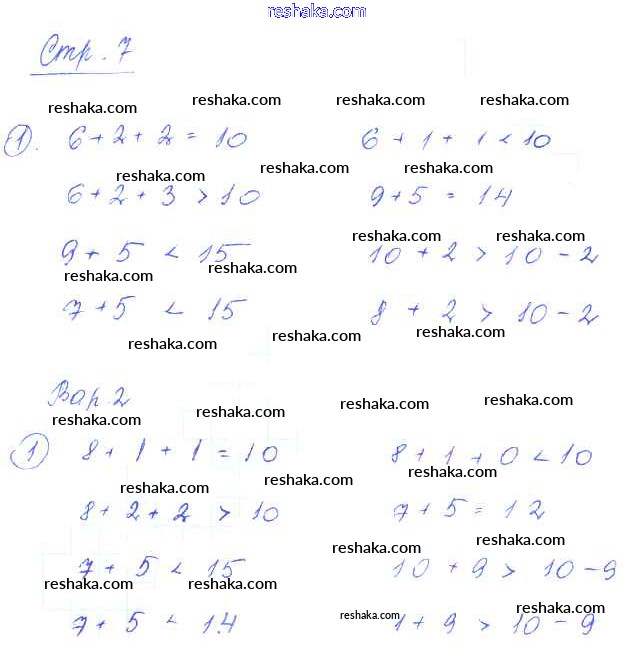 reshaka.com
Стр. 7
reshaka.com reshaka.com reshaka.com reshaka.com
1. 6 + 2 + 2 = 10 6 + 1 + 1 < 10
reshaka.com reshaka.com reshaka.com
6 + 2 + 3 > 10 9 + 5 = 14
reshaka.com reshaka.com
9 + 5 < 15 10 + 2 > 10 - 2
reshaka.com reshaka.com
7 + 5 < 15 8 + 2 > 10 - 2
reshaka.com reshaka.com reshaka.com
Вар. 2
reshaka.com reshaka.com reshaka.com reshaka.com
1 8 + 1 + 1 = 10 8 + 1 + 0 < 10
reshaka.com reshaka.com reshaka.com
8 + 2 + 2 > 10 7 + 5 = 12
reshaka.com reshaka.com
7 + 5 < 15 10 + 9 > 10 - 9
reshaka.com reshaka.com
7 + 5 < 14 1 + 9 > 10 - 9
reshaka.com reshaka.com